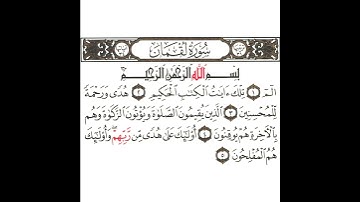 سُورَةُ لُقْمَانَ
بِسْمِ اللَّهِ الرَّحْمَٰنِ الرَّحِيمِ
الٓمٓ ١ تِلْكَ ءَايَٰتُ الْكِتَٰبِ الْحَكِيمِ ٢ هُدًى وَرَحْمَةً
لِّلْمُحْسِنِينَ ٣ الَّذِينَ يُقِيمُونَ الصَّلَوٰةَ وَيُؤْتُونَ الزَّكَوٰةَ وَهُم
بِالْءَاخِرَةِ هُمْ يُوقِنُونَ ٤ أُولَٰٓئِكَ عَلَىٰ هُدًى مِّن رَّبِّهِمْ وَأُولَٰٓئِكَ
هُمُ الْمُفْلِحُونَ ٥